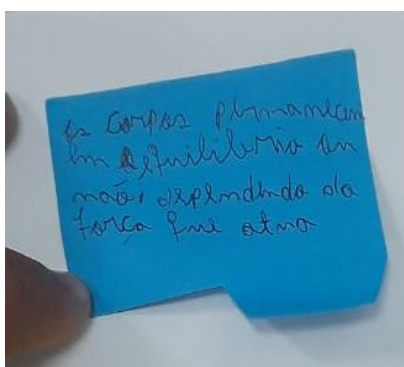 Os corpos permanecem
em equilíbrio ou
não, dependendo da
força que atua